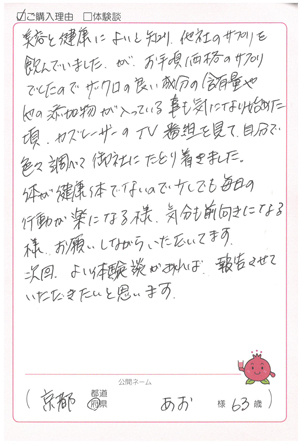 ☑ご購入理由 □体験談
美容と健康によいと知り、他社のサプリを
飲んでいました。が、お手頃価格のサプリ
でしたのでザクロの良い成分の含有量や
他の添加物が入っている事も気になり始めた
頃、カズレーザーのTV番組を見て、自分で
色々調べて御社にたどり着きました。
体が健康体でないので少しでも毎日の
行動が楽になる様、気分も前向きになる
様、お願いしながらいただいてます。
次回、よい体験談があれば、報告させて
いただきたいと思います。
公開ネーム
(京都 都道府県 あお 様 63歳)